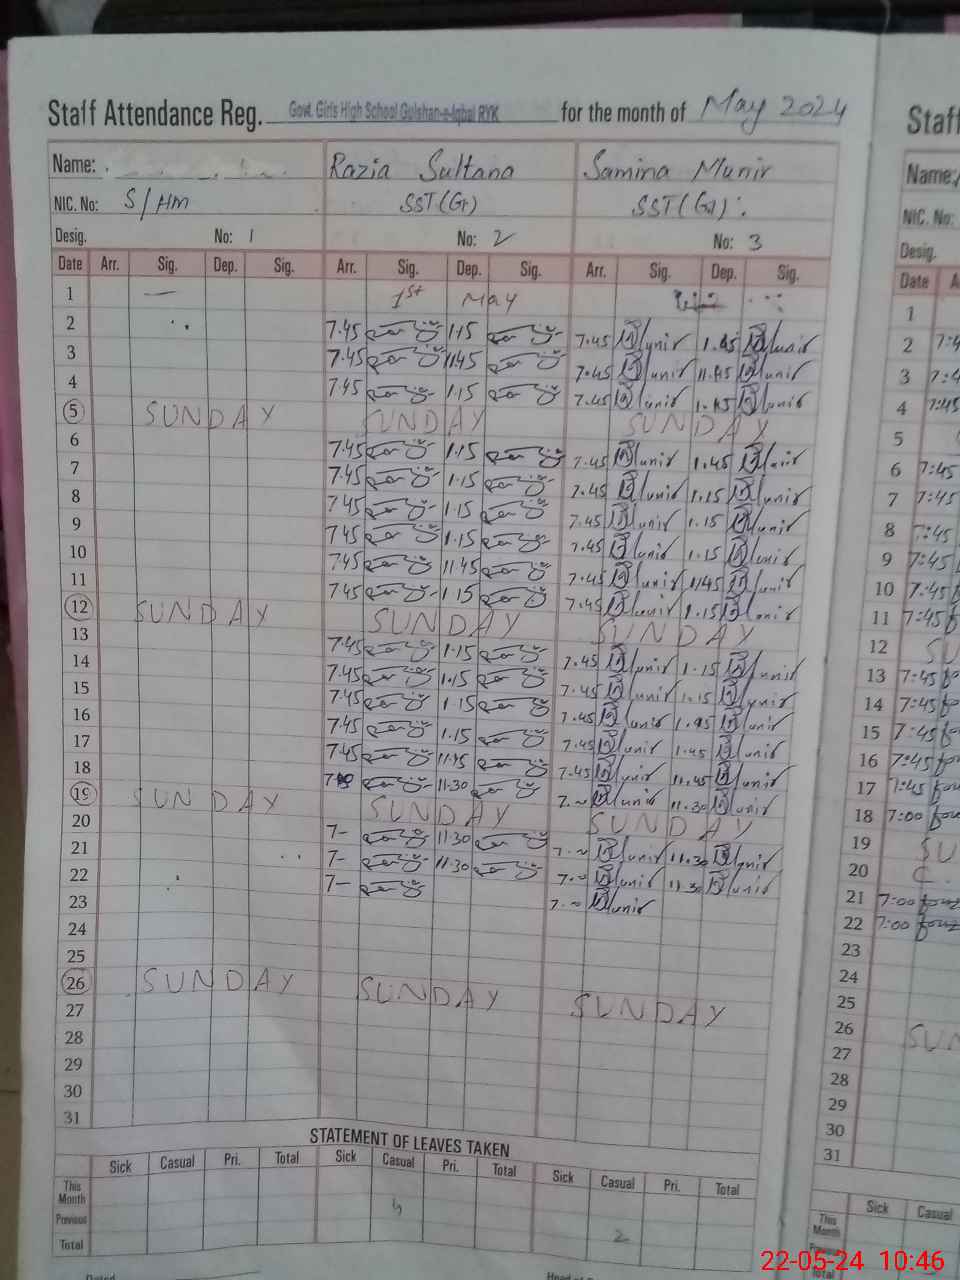 Staff Attendance Reg. Govt. Girls High School Gulshan-e-Iqbal RYK for the month of May 2024 Staff
Name: Razia Sultana Samina Munir Name:
NIC. No: S/HM SST(G) SST(Gd) NIC. No:
Desig. No: 1 No: 2 No: 3 Desig.
Date Arr. Sig. Dep. Sig. Arr. Sig. Dep. Sig. Arr. Sig. Dep. Sig. Date
1 — 1st May 1
2 7.45 1.15 7.45 Munir 1.45 Munir 2
3 7.45 11.45 7.45 Munir 11.45 Munir 3 7:4
4 7.45 1.15 7.45 Munir 1.45 Munir 4 7:45
5 SUNDAY SUNDAY SUNDAY 5
6 7.45 1.15 7.45 Munir 1.45 Munir 6 7:45
7 7.45 1.15 7.45 Munir 1.15 Munir 7 7:45
8 7.45 1.15 7.45 Munir 1.15 Munir 8 7:45
9 7.45 1.15 7.45 Munir 1.15 Munir 9 7:45
10 7.45 11.45 7.45 Munir 11.45 Munir 10 7:45
11 7.45 1.15 7.45 Munir 1.15 Munir 11 7:45
12 SUNDAY SUNDAY SUNDAY 12 SU
13 7.45 1.15 7.45 Munir 1.15 Munir 13 7:45
14 7.45 1.15 7.45 Munir 1.15 Munir 14 7:45
15 7.45 1.15 7.45 Munir 1.45 Munir 15 7:45
16 7.45 1.15 7.45 Munir 1.45 Munir 16 7:45
17 7.45 11.45 7.45 Munir 11.45 Munir 17 7:45
18 11.30 7.~ Munir 11.30 Munir 18 7:00
19 SUNDAY SUNDAY SUNDAY 19 SU
20 7- 11.30 7.~ Munir 11.30 Munir 20
21 7- 11.30 7.~ Munir 11.30 Munir 21 7:00
22 7- 7.~ Munir 22 7:00
23 23
24 24
25 25
26 SUNDAY SUNDAY SUNDAY 26 SUN
27 27
28 28
29 29
30 30
31 31
STATEMENT OF LEAVES TAKEN
Sick Casual Pri. Total Sick Casual Pri. Total Sick Casual Pri. Total Sick Casual
This Month This Month
Previous 2
Total Total
Dated Head of
22-05-24 10:46